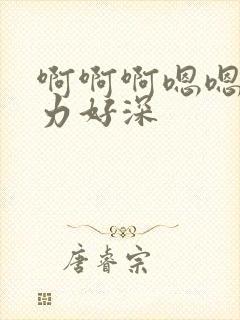 啊啊啊嗯嗯
力好深
唐睿宗